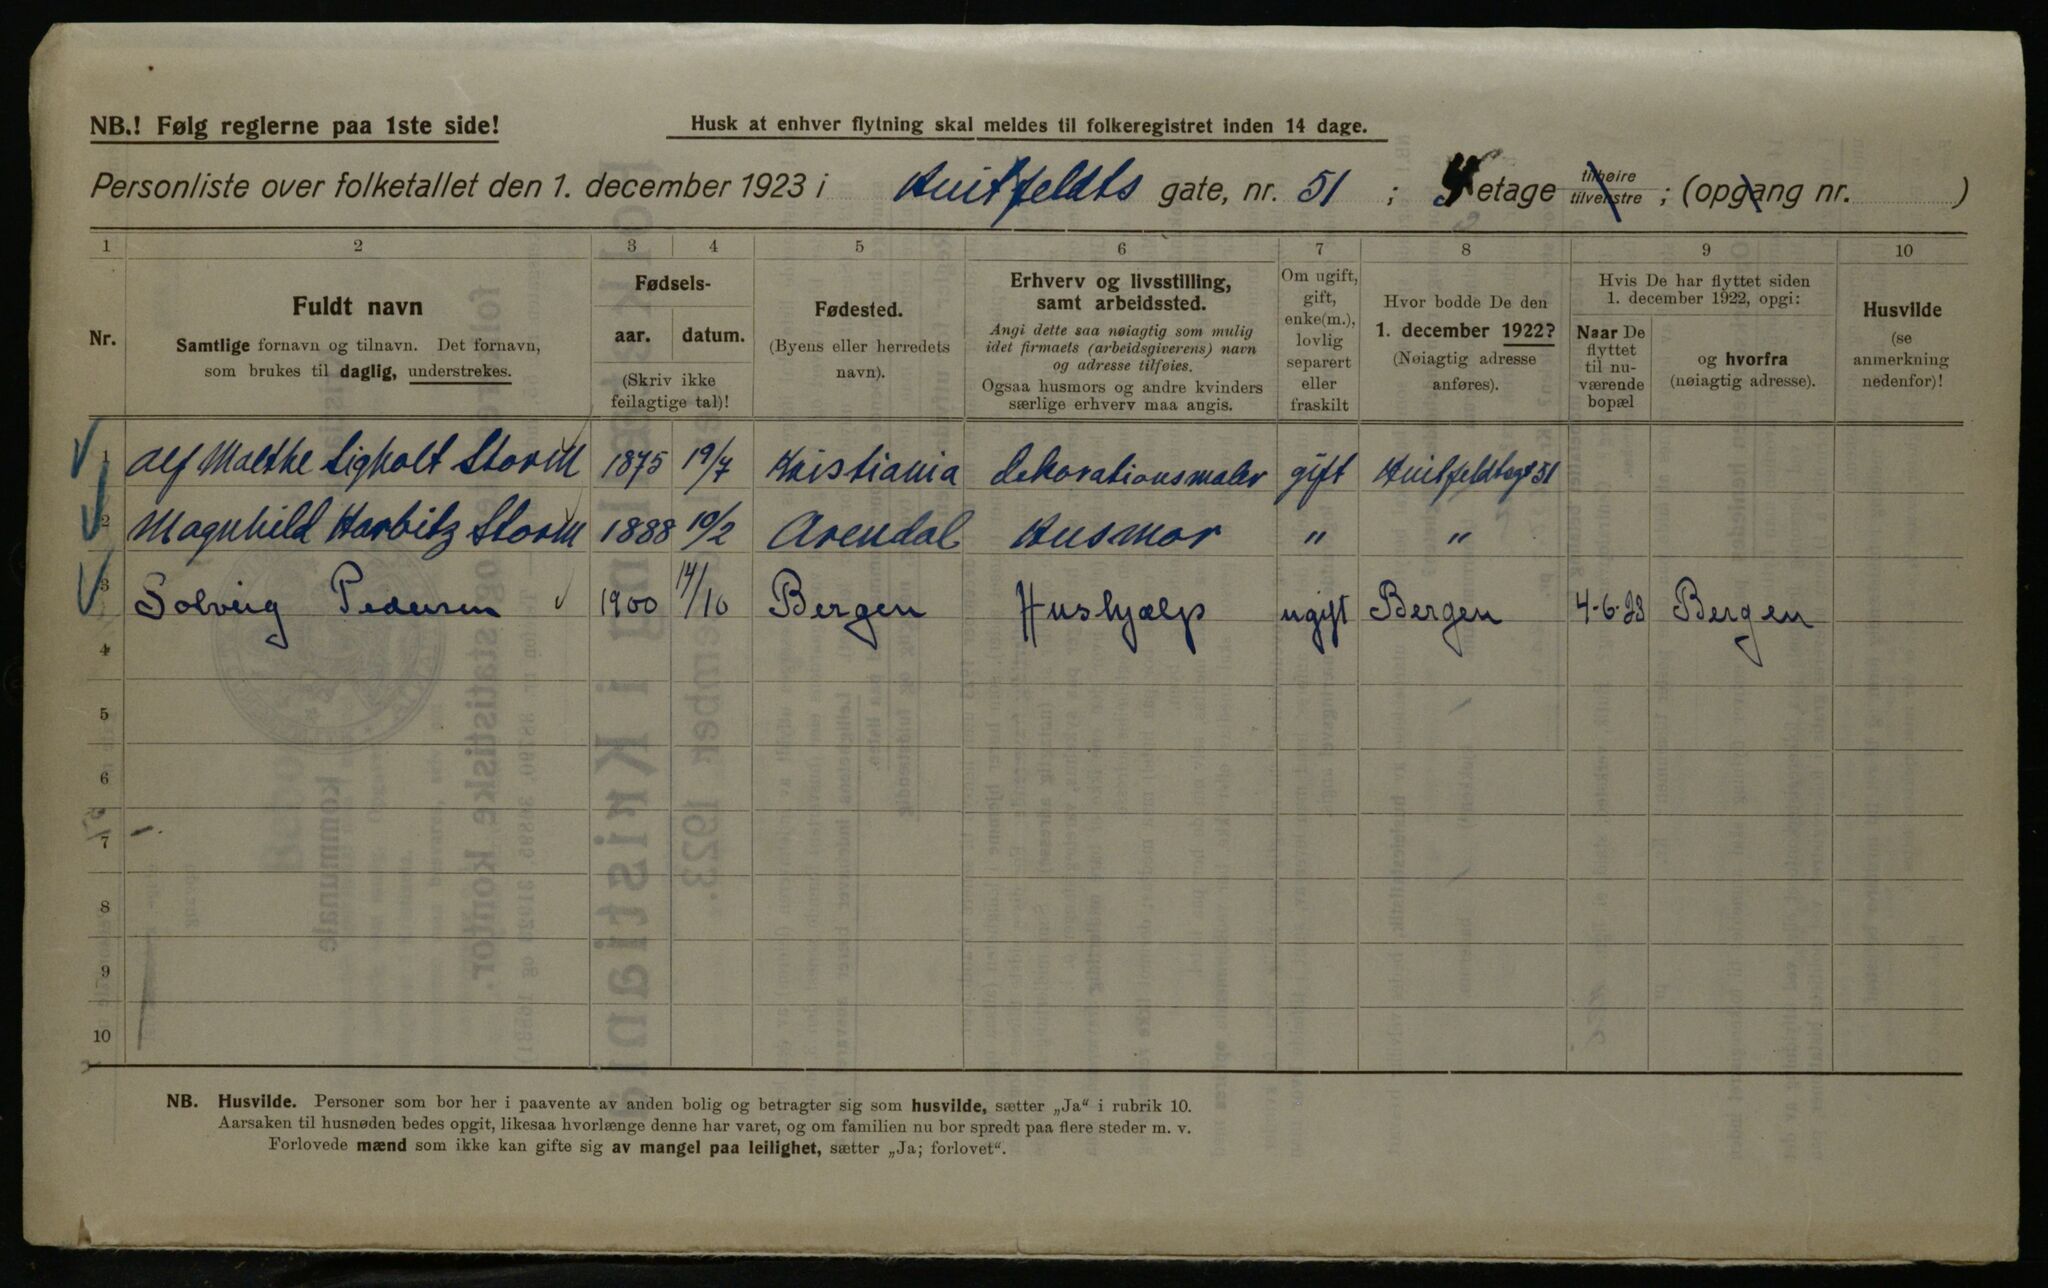 NB.! Følg reglerne paa 1ste side!
Husk at enhver flytning skal meldes til folkeregistret inden 14 dage.
Personliste over folketallet den 1. december 1923 i Huitfeldts gate, nr. 51 ; 4 etage tilhøire tilvenstre ; (opgang nr. )
1 2 3 4 5 6 7 8 9 10
Nr.
Fuldt navn
Samtlige fornavn og tilnavn. Det fornavn,
som brukes til daglig, understrekes.
Fødsels-
aar. datum.
(Skriv ikke
feilagtige tal)!
Fødested.
(Byens eller herredets
navn).
Erhverv og livsstilling,
samt arbeidssted.
Angi dette saa nøiagtig som mulig
idet firmaets (arbeidsgiverens) navn
og adresse tilføies.
Ogsaa husmors og andre kvinders
særlige erhverv maa angis.
Om ugift,
gift,
enke(m.),
lovlig
separert
eller
fraskilt
Hvor bodde De den
1. december 1922?
(Nøiagtig adresse
anføres).
Hvis De har flyttet siden
1. december 1922, opgi:
Naar De
flyttet
til nu-
værende
bopæl
og hvorfra
(nøiagtig adresse).
Husvilde
(se
anmerkning
nedenfor)!
1 Alf Malthe Sigholt Storm 1875 19/7 Kristiania dekorationsmaler gift Huitfeldtsgt 51
2 Magnhild Harbitz Storm 1888 10/2 Arendal Husmor " "
3 Solveig Pedersen 1900 14/10 Bergen Hushjælp ugift Bergen 4-6-23 Bergen
4
5
6
7
8
9
10
NB. Husvilde. Personer som bor her i paavente av anden bolig og betragter sig som husvilde, sætter „Ja“ i rubrik 10.
Aarsaken til husnøden bedes opgit, likesaa hvorlænge denne har varet, og om familien nu bor spredt paa flere steder m. v.
Forlovede mænd som ikke kan gifte sig av mangel paa leilighet, sætter „Ja; forlovet“.